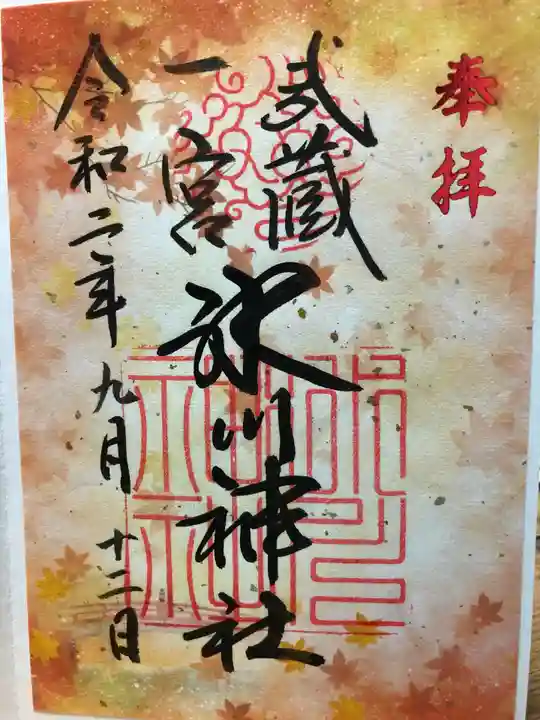 奉拝
武蔵
一宮
氷川神社
令和二年九月十二日
氷川神社